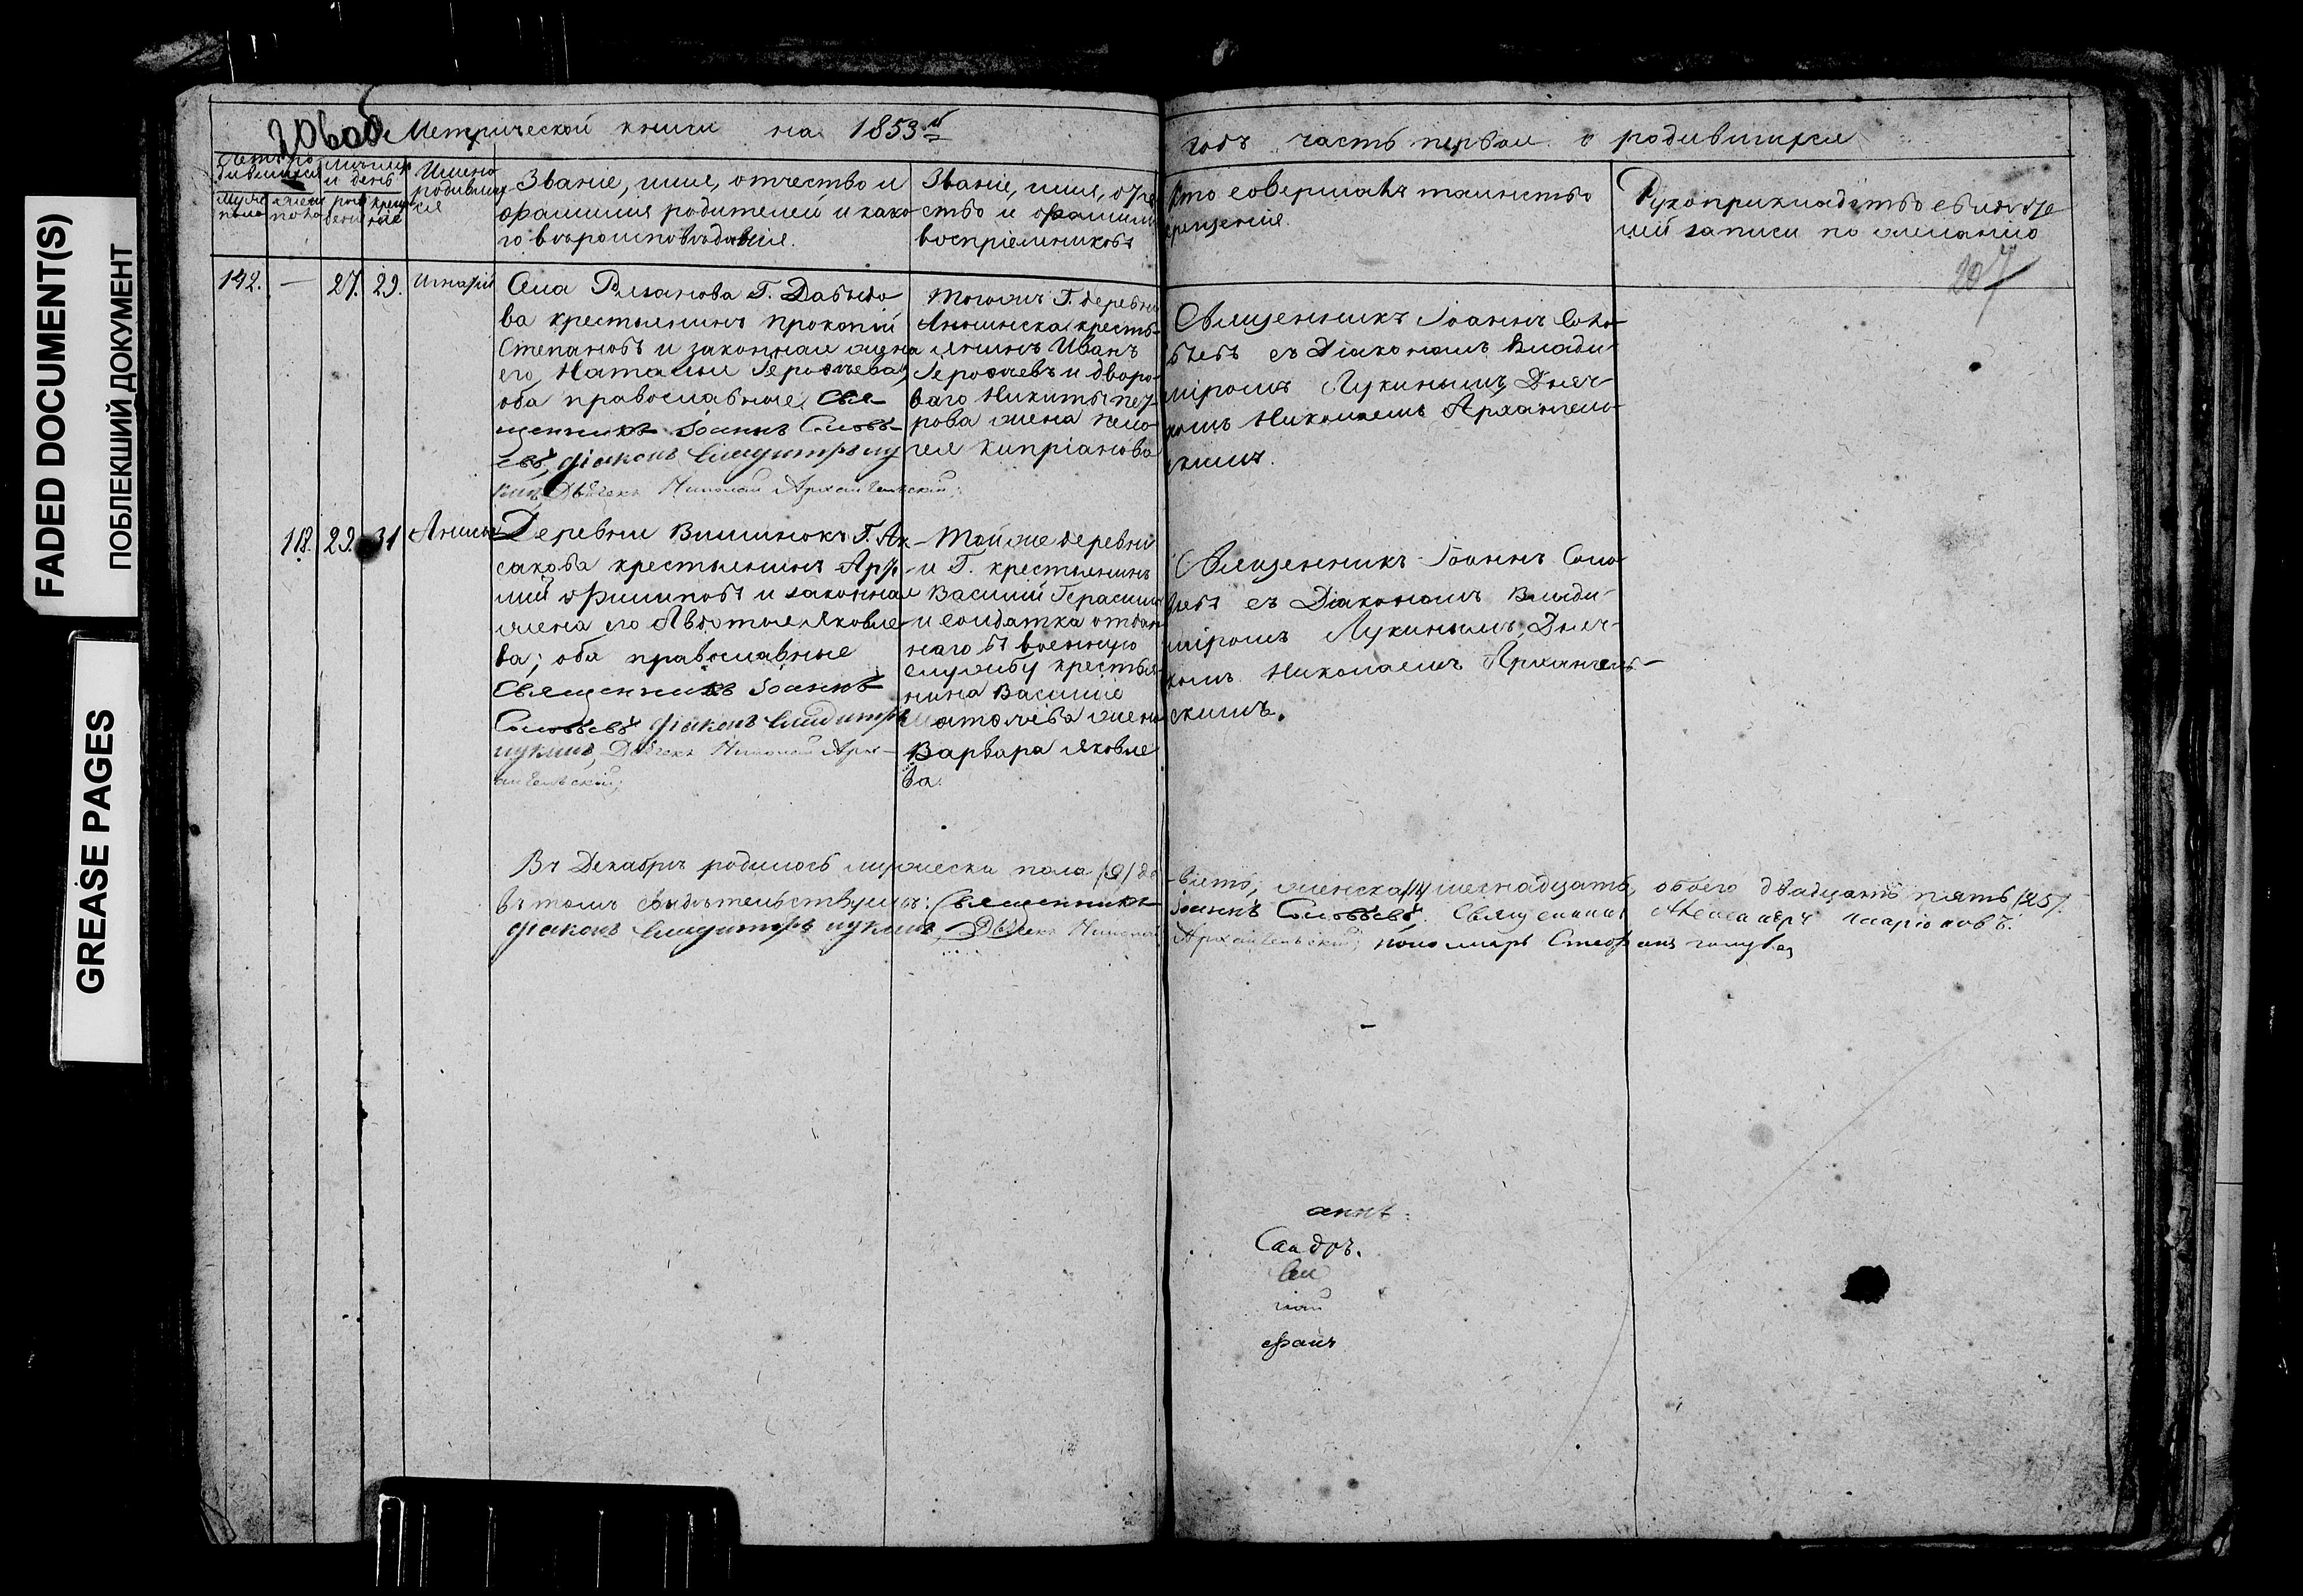 FADED DOCUMENT(S)
ПОБЛЕКШИЙ ДОКУМЕНТ
GREASE PAGES
206 об
Метрической книги на 1853й
годъ часть первая о родившихся
Счетъ родившихся
Муже пола
женс пола
Мѣсяцъ и день
рождения
крещения
Имена родившихся
Званіе, имя, отчество и
фамилия родителей и како
го вѣроисповѣданія.
Званіе, имя, отче
ство и фамилия
воспріемниковъ
Кто совершалъ таинство
крещенія.
Рукоприкладство свидѣте
лей записи по желанію
207
142. — 27. 29. Игнатій
Села Рязанова Г. Давыдо
ва крестьянинъ Прокопій
Степановъ и законная жена
его, Наталья Герофѣева,
оба православные, Свя-
щенникъ Іоаннъ Соловь-
евъ, діаконъ Владимиръ Лу
кинъ, Дьячекъ Николай Архангельскій;
Тогоже Г. деревни
кресть-
янинъ Иванъ
Герофѣевъ и дворо-
ваго Никиты Пет-
рова жена Пела-
гея Кипріанова
Священникъ Іоаннъ Соло-
вьевъ съ Діакономъ Влади-
міромъ Лукинымъ, Дьяч-
комъ Николаемъ Архангель-
скимъ.
118. 29. 31 Анисья
Деревни Вишинокъ Г. Ак-
сакова крестьянинъ
Филиповъ и законная
жена его Авдотья Яковле-
ва; оба православные
Священникъ Іоаннъ
Соловьевъ діаконъ Владимиръ
Лукинъ, Дьячекъ Николай Арх-
ангельскій;
Той же деревни
и Г. крестьянинъ
Василий Герасимовъ
и солдатка отдан
наго въ военную
службу крестья-
нина Василия
жена
Варвара Яковле
ва.
Священникъ Іоаннъ Соло
вьевъ съ Діакономъ Влади-
міромъ Лукинымъ, Дьяч-
комъ Николаемъ Архангель-
скимъ.
Въ Декабрѣ родилось мужеска пола (9) де
вять, женска шестнадцать, обоего двадцать пять (25).
въ томъ свидѣтельствуемъ: Священникъ
Іоаннъ Соловьевъ. Священникъ Александръ Иларіоновъ.
діаконъ Владимиръ Лукинъ, Дьячекъ Николай
Архангельскій; пономарь Стефанъ
аннъ
сандръ.
лай
фанъ